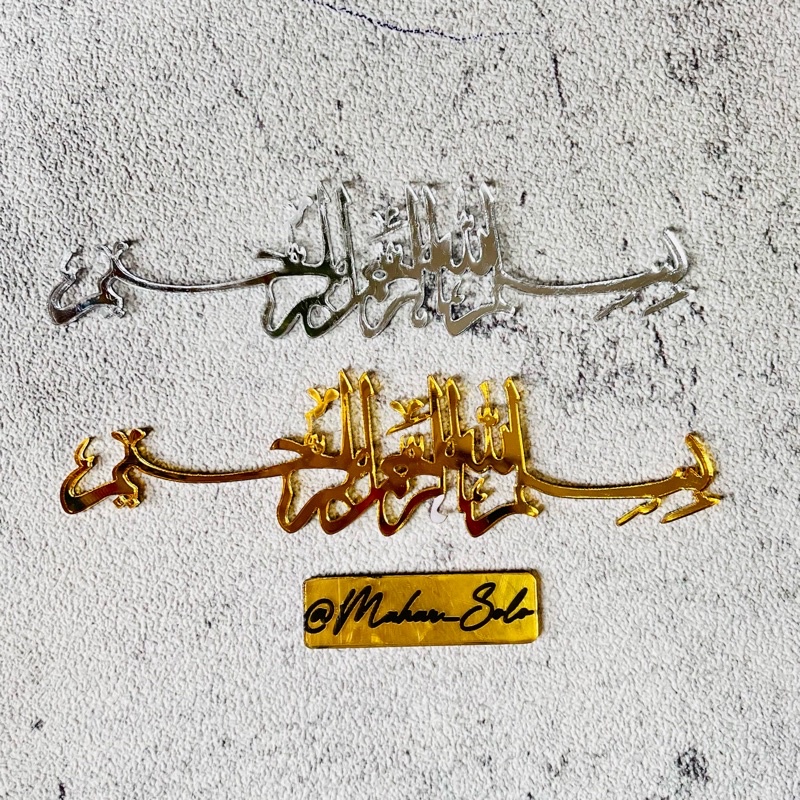 بسم الله الرحمن الرحيم
بسم الله الرحمن الرحيم
@Mahar_Solo